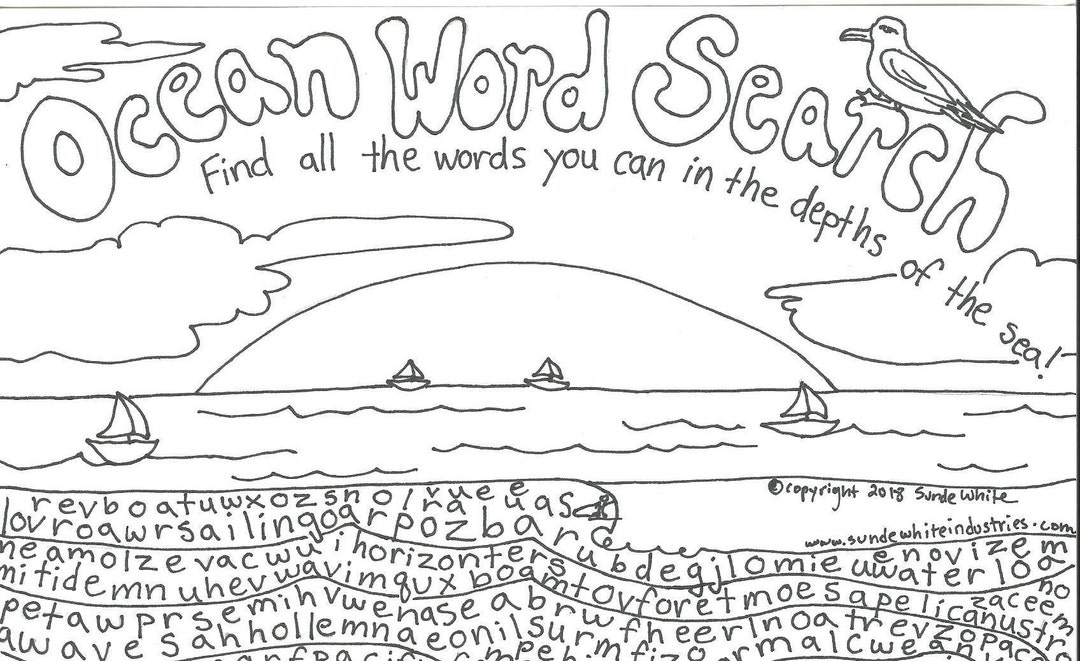 Ocean Word Search
Find all the words you can in the depths of the sea!
©copyright 2018 Sunde White
www.sundewhiteindustries.com
revboatuwxozsno
lovroawrsailingoarpozbar
neamolzevacwuihorizonters
ubdegjlomieuwaterloa
enovizem
mitidemnuhevwavimquxboamtovforetmoesapelicanustr
petawprsemihvwehaseabrwfheerlnoatrevzopiac
awavesahhollemnaeonilsurmfizormalcweani